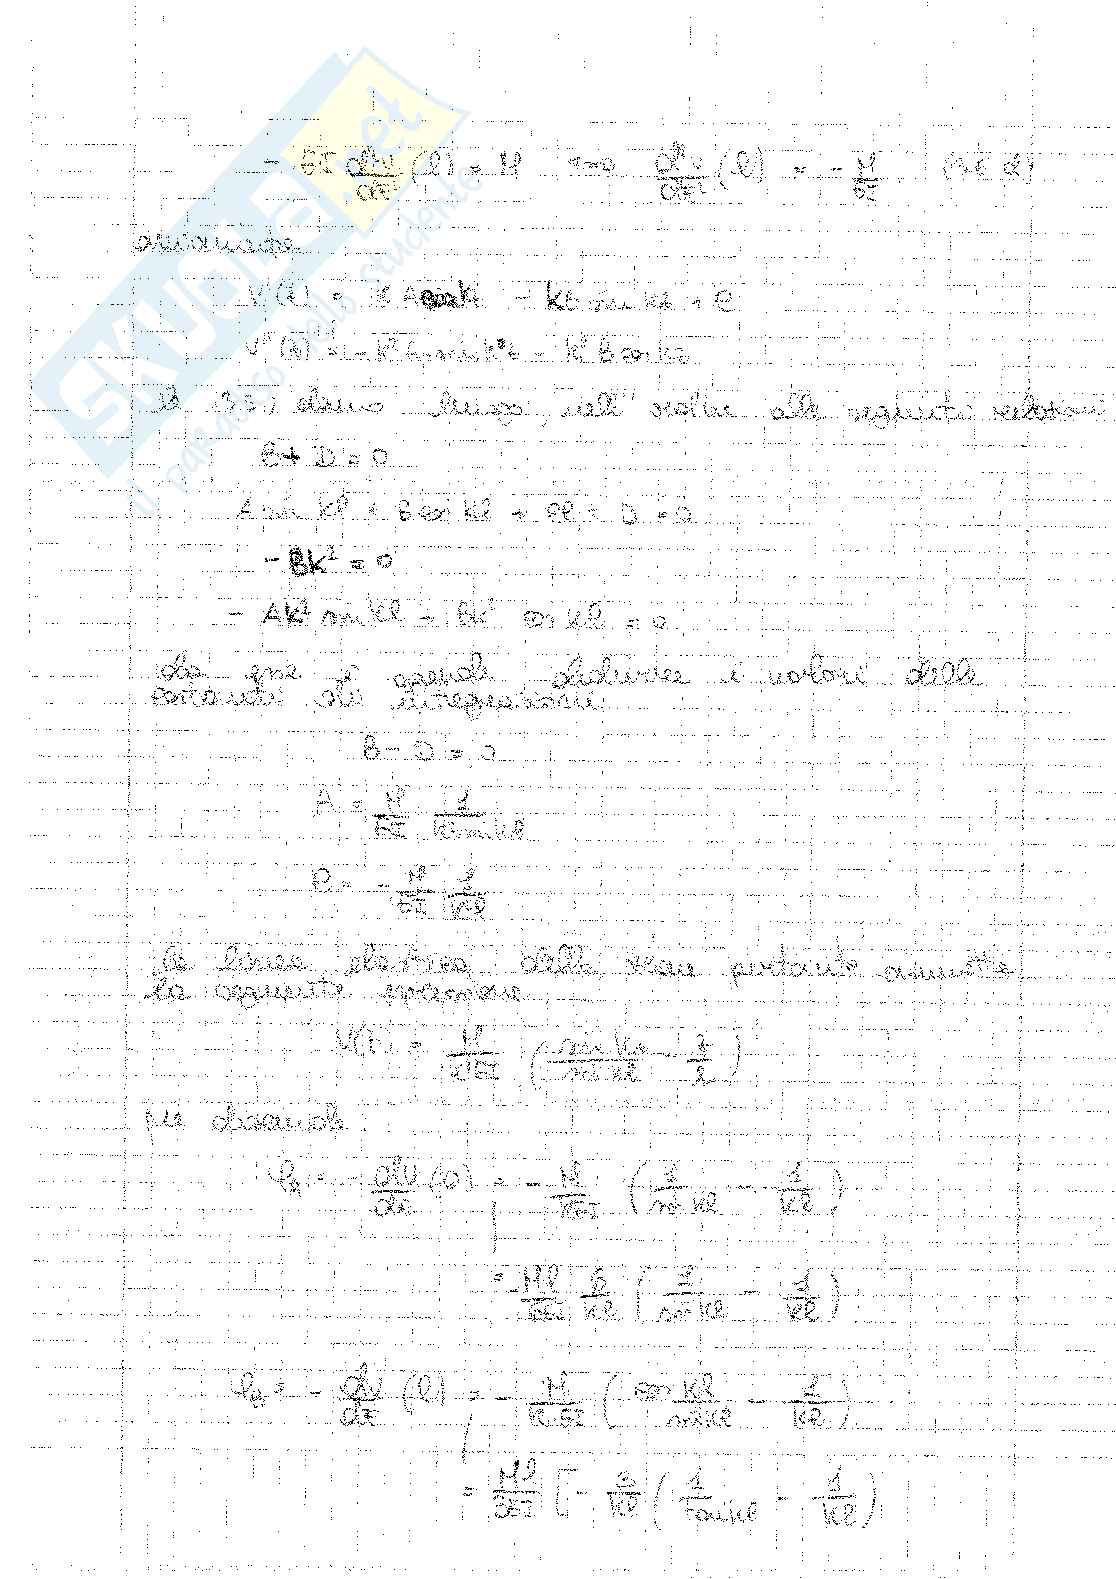 - EI d²v/dz² (l) = M ⟹ d²v/dz² (l) = - M/EI (3.6 d)
ovviamente
V'(z) = K A cos Kz - KB sin Kz + C
V''(z) = - K² A sin Kz - K² B cos Kz
le danno luogo, nell'ordine alle seguenti relazioni
B + D = 0
A sin Kl + B cos Kl + Cl + D = 0
- BK² = 0
- AK² sin Kl - BK² cos Kl = 0
da esse è dedurre i valori delle
costanti di integrazioni
B = D = 0
A = M/EI 1/K² sin Kl
C = - M/EI 1/K²l
la linea elastica della trave portante assume
la seguente espressione
V(z) = M/K²EI ( sin Kz/sin Kl - z/l )
per
φA = - dv/dz (0) = - M/KEI ( 1/sin Kl - 1/Kl )
= Ml/6EI 6/Kl ( 1/sin Kl - 1/Kl )
φB = - dv/dz (l) = - M/KEI ( cos Kl/sin Kl - 1/Kl )
= Ml/3EI [ - 3/Kl ( 1/tan Kl - 1/Kl )
SKUOLA.net
il paradiso dello studente